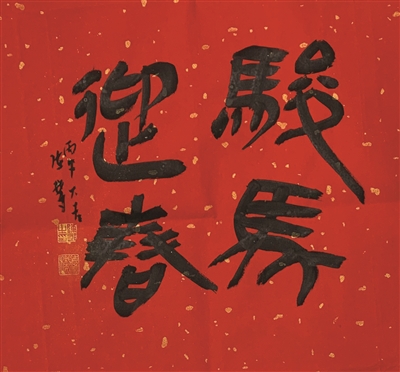 駿馬
迎春
丙午大吉